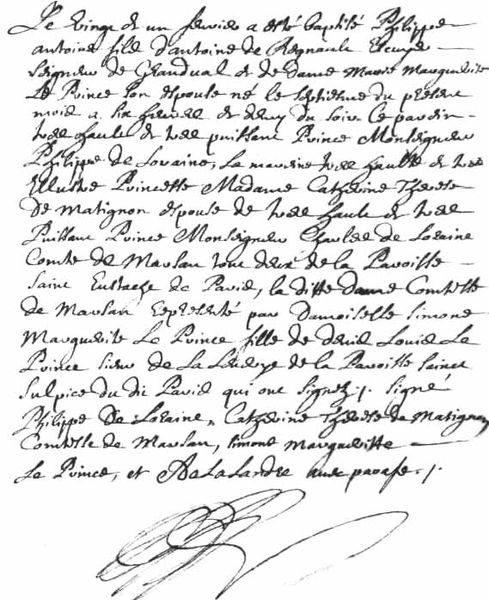 Le vingt et un fevrier a esté baptisé Philippe
antoine fils d'antoine de Regnault Ecuyer
Seigneur de et de dame Marie Marguerite
Le Prince son espouse né le septiesme du present
mois a six heures et demy du soir Le parein
tres hault et tres puissant Prince Monseigneur
Philippe de Loraine, La mareine tres haulte et tres
Illustre Princesse Madame Catherine Therese
de Matignon espouse de tres hault et tres
Puissant Prince Monseigneur Charles de Loraine
Comte de Marsan tous deux de la Paroisse
saint Eustache de Paris, la ditte dame Comtesse
de Marsan representé par damoiselle simone
Marguerite Le Prince fille de deput Louis Le
Prince sieur de La de la Paroisse saint
sulpice du dit Paris qui ont signez /. signé
Philippe De Loraine, Catherine Therese de Matignon
Comtesse de Marsan, simone margueritte
Le Prince, et DeLaLandre avec parafe ./.